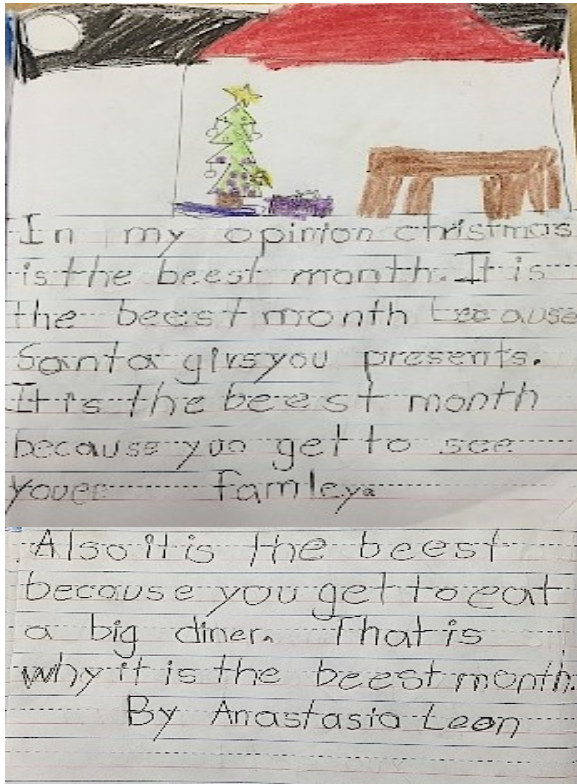 In my opinion christmas
is the beest month. It is
the beest month because
Santa givs you presents.
It is the beest month
because you get to see
youer famley.
Also it is the beest
because you get to eat
a big diner. That is
why it is the beest month.
By Anastasia Leon